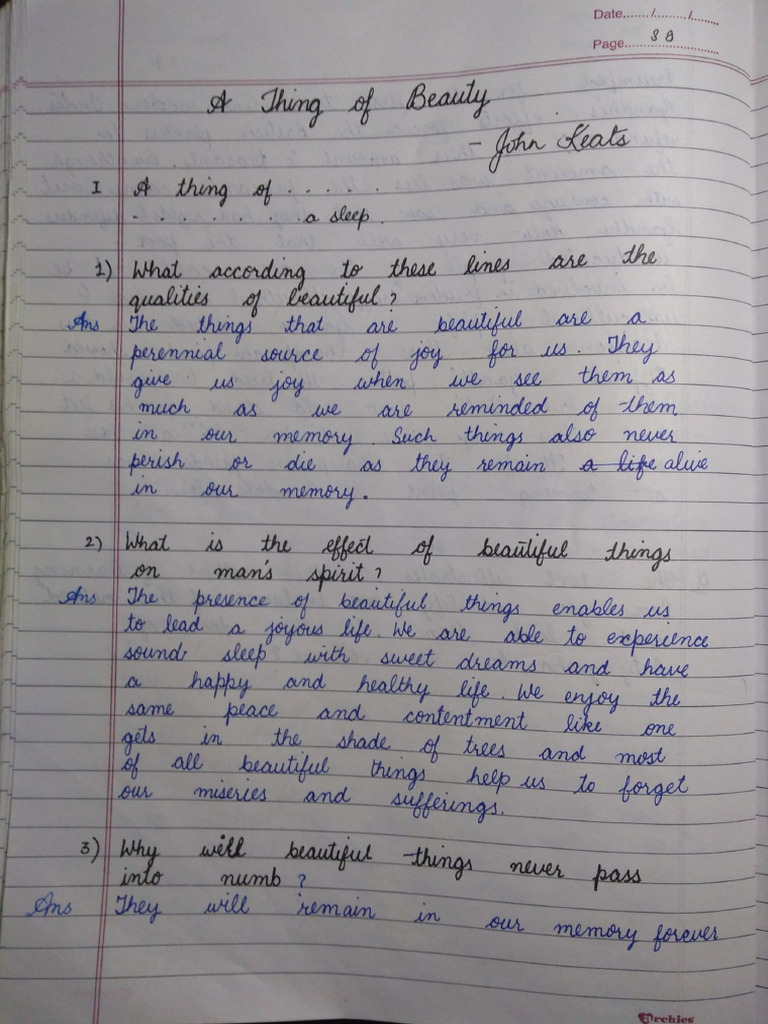 Date......./......../........
Page.... 38
A Thing of Beauty
- John Keats
I A thing of . . . . .
. . . . . . a sleep.
1) What according to these lines are the
qualities of beautiful?
Ans The things that are beautiful are a
perennial source of joy for us. They
give us joy when we see them as
much as we are reminded of them
in our memory. Such things also never
perish or die as they remain a life alive
in our memory.
2) What is the effect of beautiful things
on man's spirit?
Ans The presence of beautiful things enables us
to lead a joyous life. We are able to experience
sound sleep with sweet dreams and have
a happy and healthy life. We enjoy the
same peace and contentment like one
gets in the shade of trees and most
of all beautiful things help us to forget
our miseries and sufferings.
3) Why will beautiful things never pass
into numb?
Ans They will remain in our memory forever
Archies